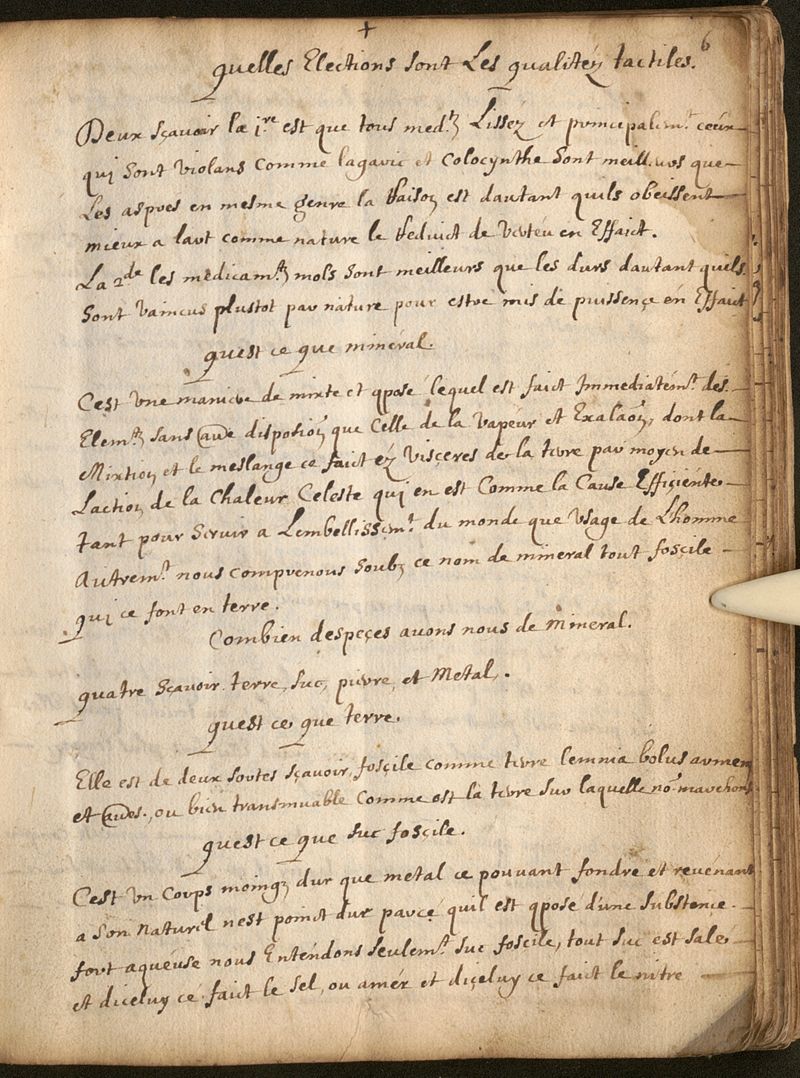 +
6
quelles Elections sont Les qualitéz tactiles.
Deux sçavoir la 1re est que tous medts Lissez et principalemt ceux
qui sont violans comme lagaric et colocynthe sont meilleurs que
Les aspres en mesme genre la Raison est dautant quils obeissent
mieux a lart comme nature le Reduict de Vertéu en Effaict.
La 2de les medicamts mols sont meilleurs que les durs dautant quils
sont vaincus plustot par nature pour estre mis de puissençe én Effaict
quest ce que minéral.
Cest vne maniere de mixte et qposé lequel est faict Immediatémt des
Elemts sans aue dispotion que celle de la vapéur et Exalaõn, dont la
Mixtion et le meslange ce faict ez visçeres de la terre par moyen de
Laction de la Chaleur Celeste qui en est Comme la Cause Effiçiénte
tant pour seruir a Lembellissemt du monde que Vsage de Lhomme
Autremt nous comprenous soubz ce nom de mineral tout fosçile
qui ce font en terre.
Combien despeçes avons nous de Mineral.
quatre sçavoir terre, suc, pierre, et Metal.
quest ce que terre.
Elle est de deux sortes sçavoir, fosçile comme terre lemnia bolus armen
et aues., ou bien transmuable Comme est la terre sur laquelle no9 marchons
quest ce que suc fosçile.
Cest vn Corps moingz dur que metal ce pouvant fondre et revénant
a son naturel nest poinct dur parcé quil est qposé d'une substençe
fort aquéuse nous Enténdons seulemt suc fosçile, tout suc est salé
et diceluy cé faict le sel, ou amér et diçeluy ce faict le nitre